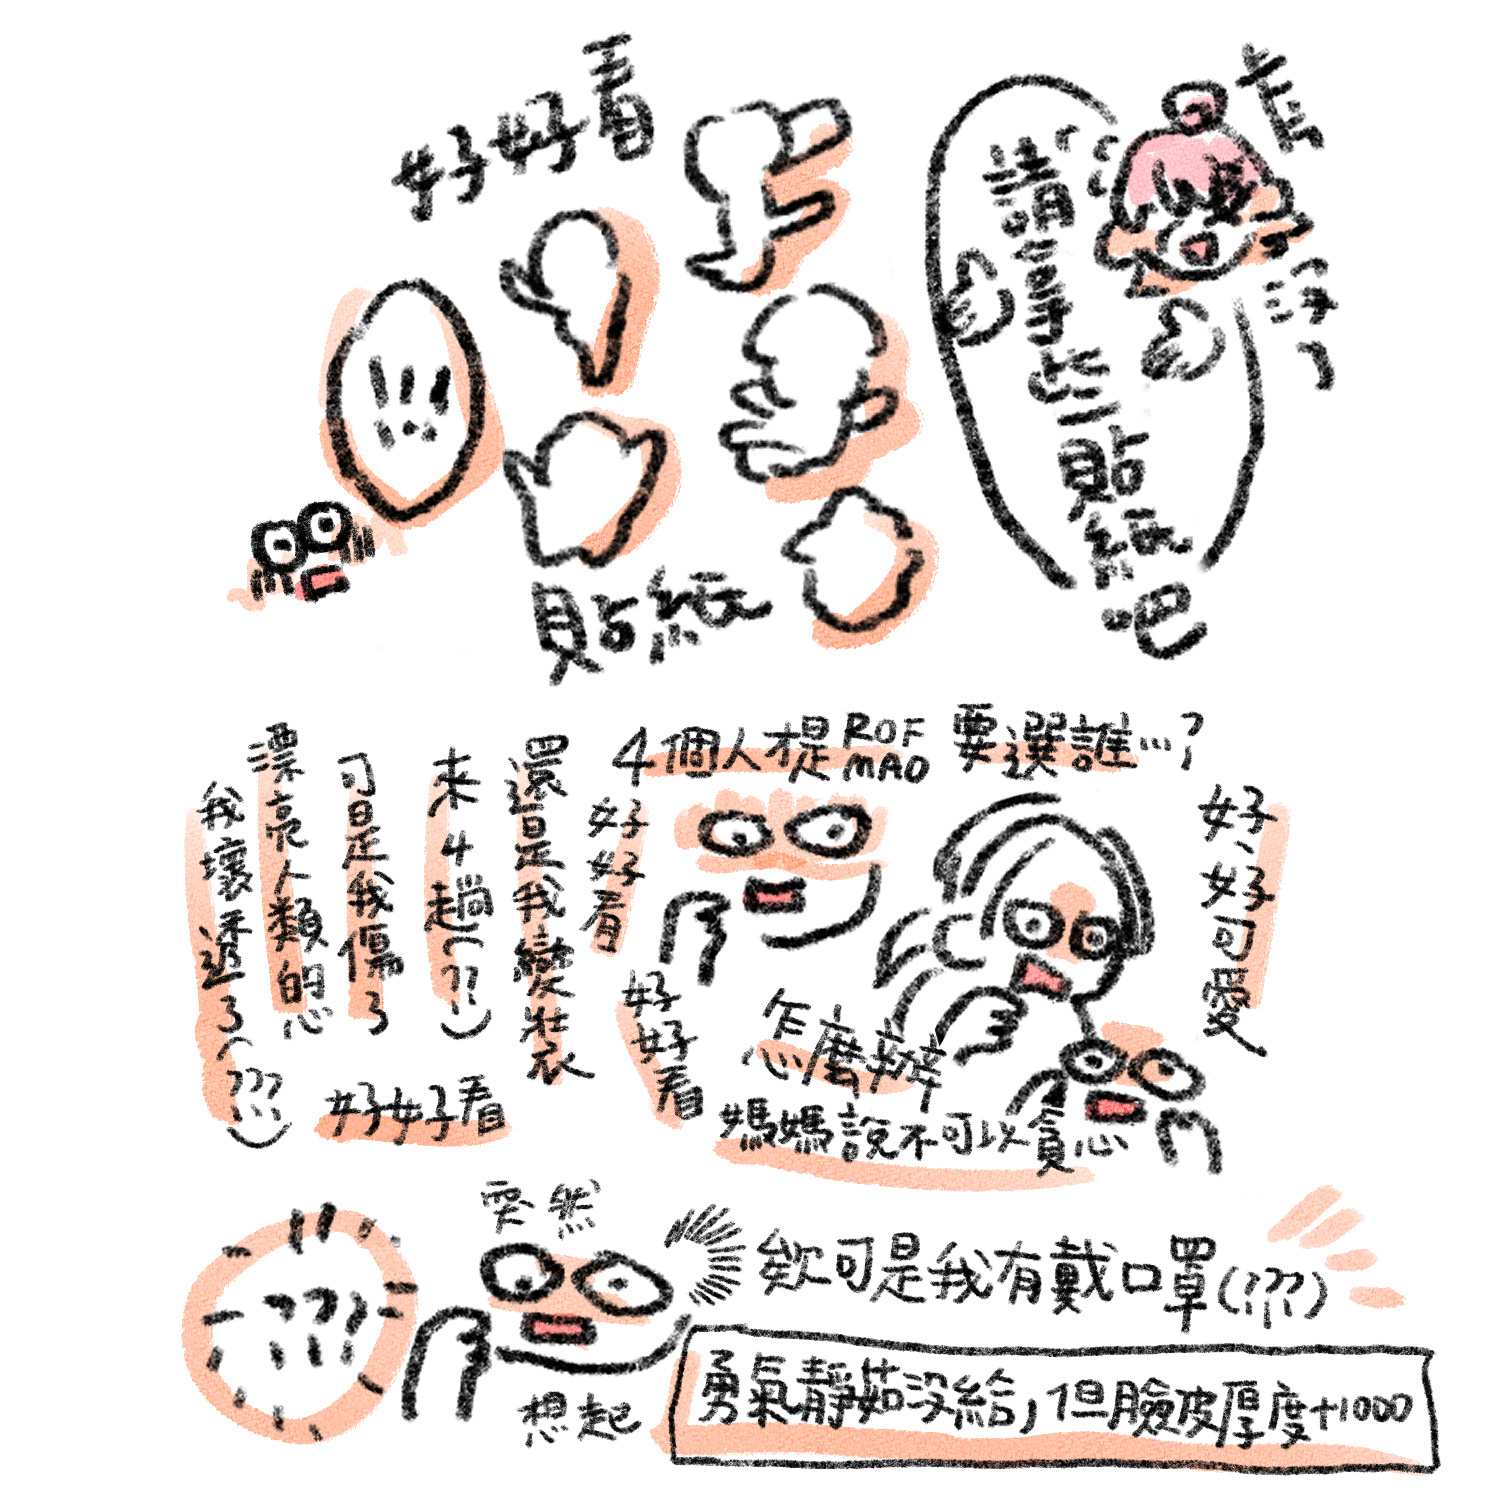 好好看
貼紙
!!!
請享些貼紙吧
4個人才是ROFMAO要選誰…?
好好看
好好看
還是我變裝
來4趟(???)
可是我傷了
漂亮人類的心
我壞透了(???)
好好看
好好可愛
怎麼辦
媽媽說不可以貪心
???
突然
想起
欸可是我有戴口罩(???)
勇氣靜茹沒給,但臉皮厚度+1000